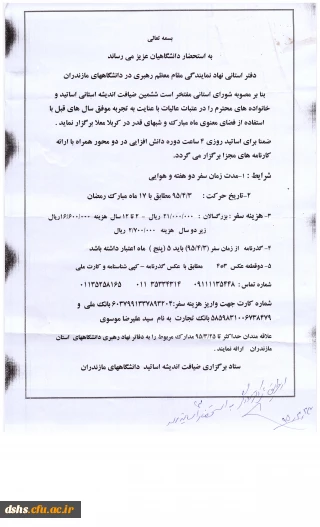 بسمه تعالی
به استحضار دانشگاهیان عزیز می رساند
دفتر استانی نهاد نمایندگی مقام معظم رهبری در دانشگاههای مازندران
بنا بر مصوبه شورای استانی مفتخر است ششمین ضیافت اندیشه استانی اساتید و
خانواده های محترم را در عتبات عالیات با عنایت به تجربه موفق سال های قبل با
استفاده از فضای معنوی ماه مبارک و شبهای قدر در کربلا معلا برگزار نماید .
ضمنا برای اساتید روزی ۴ ساعت دوره دانش افزایی در دو محور همراه با ارائه
کارنامه های مجزا برگزار می گردد.
شرایط : ۱-مدت زمان سفر دو هفته و هوایی
۲-تاریخ حرکت : ۹۵/۴/۳ مطابق با ۱۷ ماه مبارک رمضان
۳- هزینه سفر :بزرگسالان : ۲۱/۰۰۰/۰۰۰ ریال - ۲ تا ۱۲ سال هزینه ۱۶/۶۰۰/۰۰۰ریال
زیر دو سال هزینه ۲/۷۰۰/۰۰۰ ریال
۴- گذرنامه از زمان سفر (۹۵/۴/۳) باید ۵ (پنج) ماه اعتبار داشته باشد
۵- دوقطعه عکس ۴*۳ مطابق با عکس گذرنامه – کپی شناسنامه و کارت ملی
شماره تماس : ۰۹۱۱۱۱۳۵۴۴۸ ۳۵۳۳۴۳۱۴ ۰۱۱ ۰۱۱۳۵۲۵۸۱۶۵
شماره کارت جهت واریز هزینه سفر: ۶۰۳۷۹۹۱۳۳۷۸۹۳۲۰۴ بانک ملی و
۵۸۵۹۸۳۱۰۰۶۷۳۸۴۷۹ بانک تجارت به نام سید علیرضا موسوی
علاقه مندان حداکثر تا ۹۵/۳/۲۵ مدارک مربوط را به دفاتر نهاد رهبری دانشگاههای استان
مازندران ارائه نمایند .
ستاد برگزاری ضیافت اندیشه اساتید دانشگاههای مازندران
dshs.cfu.ac.ir